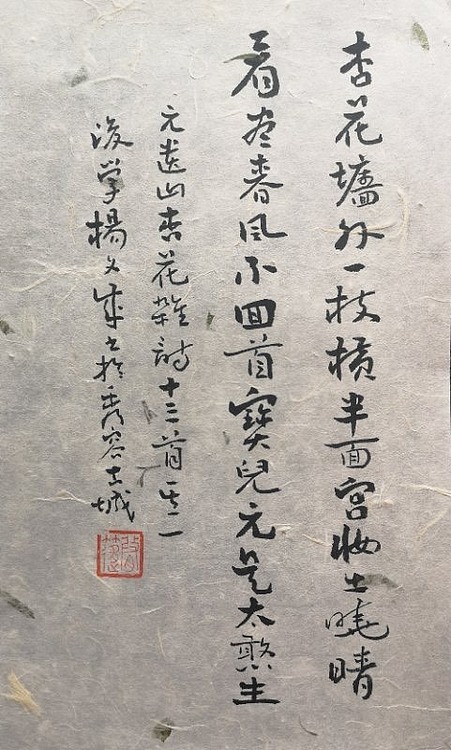 杏花墻外一枝橫半面宮妝出曉晴
看尽春風不回首寶兒元是太憨生
元遺山杏花雜詩十三首其二
後学楊文成书於秀容古城